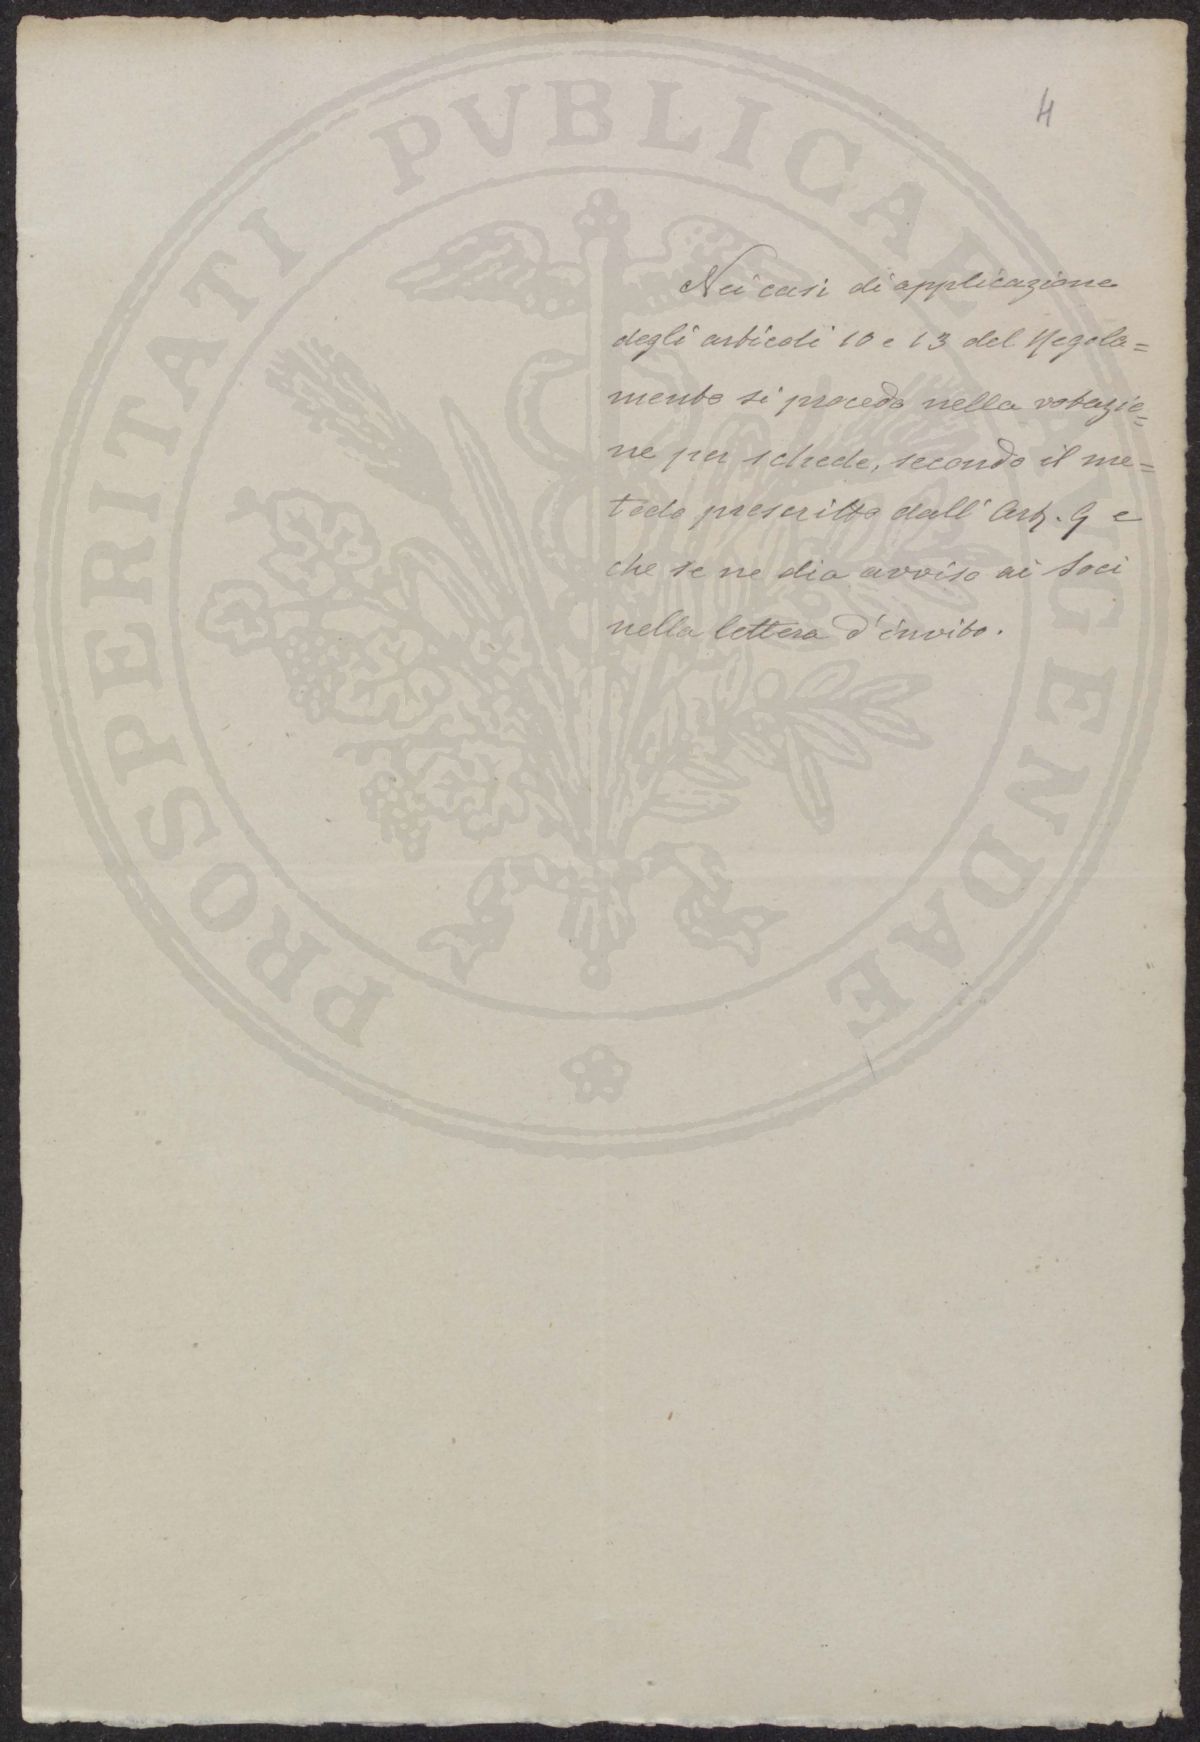 4
PROSPERITATI PVBLICAE AVGENDAE
Nei casi di applicazione
degli articoli 10 e 13 del Regola=
mento si proceda nella votazio=
ne per schede, secondo il me=
todo prescritto dall' Art. 9 e
che se ne dia avviso ai Soci
nella lettera d'invito.